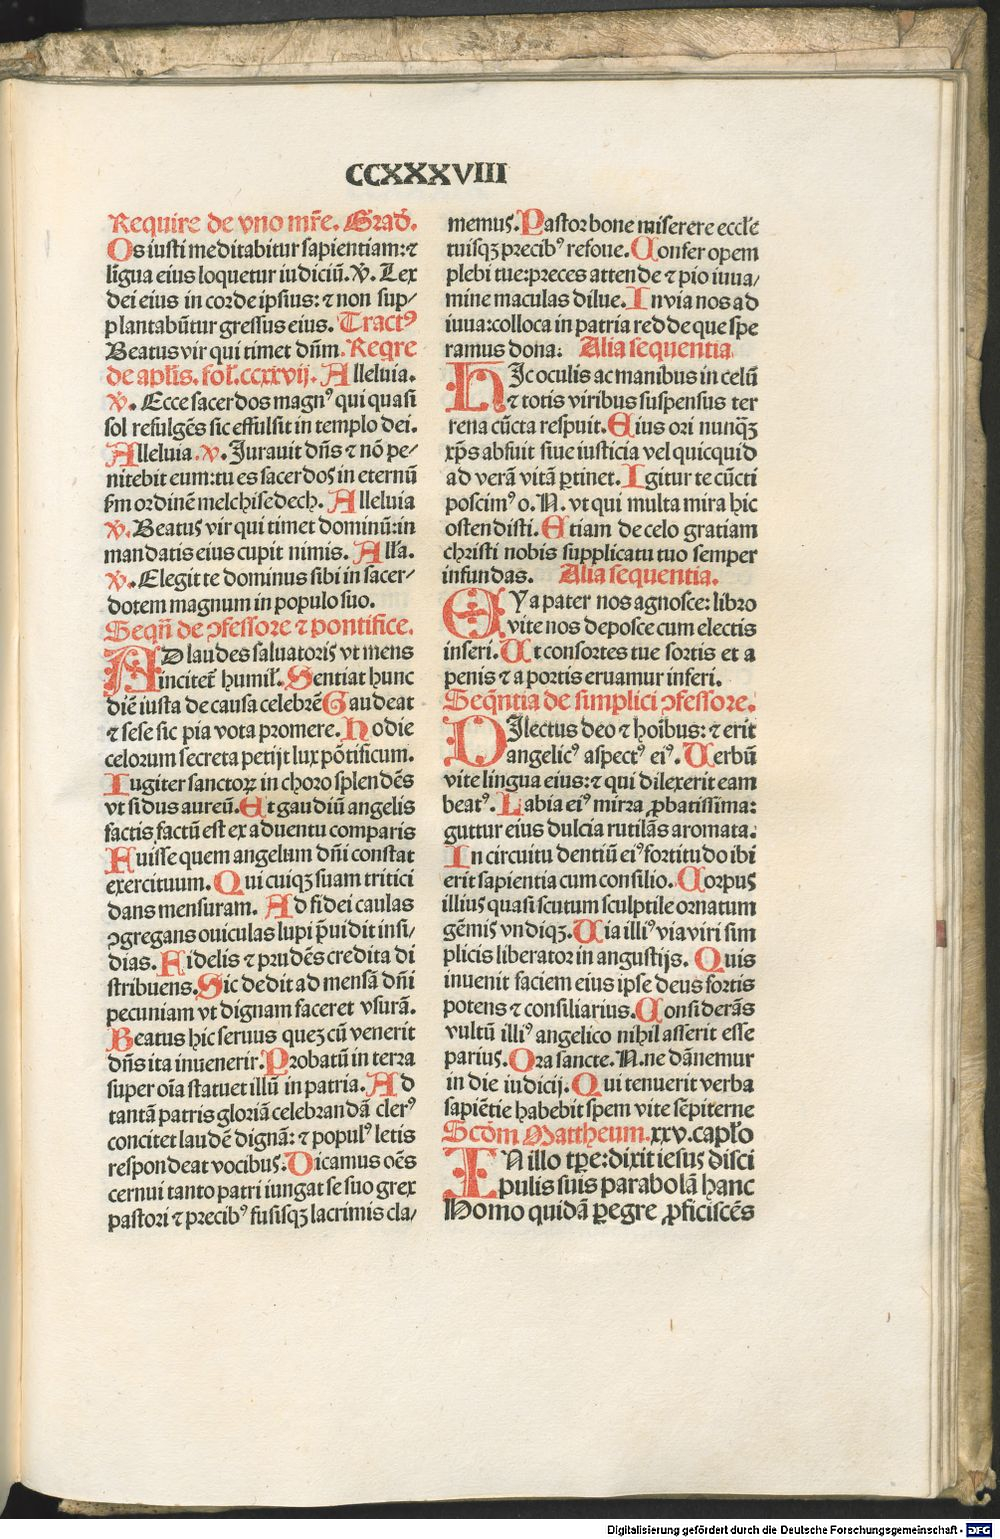 CCXXXVIII
Require de vno mr̄e. Grad̄.
Os iusti meditabitur sapientiam: ⁊
lingua eius loquetur iudiciū. v̄. Lex
dei eius in corde ipsius: ⁊ non sup⸗
plantabūtur gressus eius. Tractꝰ
Beatus vir qui timet dn̄m. Reqre
de apl̄is. fol̄. ccxxvij. Alleluia.
v̄. Ecce sacerdos magnꝰ qui quasi
sol refulgēs sic effulsit in templo dei.
Alleluia. v. Jurauit dn̄s ⁊ nō pe⸗
nitebit eum: tu es sacerdos in eternū
ẜm ordinē melchisedech. Alleluia
v̄. Beatus vir qui timet dominū: in
mandatis eius cupit nimis. All̄a.
v̄. Elegit te dominus sibi in sacer⸗
dotem magnum in populo suo.
Seqn̄ de ꝯfessore ⁊ pontifice.
AD laudes saluatoris vt mens
incitet̄ humil̄. Sentiat hunc
diē iusta de causa celebrē Gaudeat
⁊ sese sic pia vota promere. Hodie
celorum secreta petijt lux pōtificum.
Iugiter sanctoꝝ in choro splendēs
vt sidus aureū. Et gaudiū angelis
factis factū est ex aduentu comparis
Fuisse quem angelum dn̄i constat
exercituum. Qui cuiqꝫ suam tritici
dans mensuram. Ad fidei caulas
ꝯgregans ouiculas lupi p̄uidit insi⸗
dias. Fidelis ⁊ prudēs credita di
stribuens. Sic dedit ad mensā dn̄i
pecuniam vt dignam faceret vsurā.
Beatus hic seruus quez cū venerit
dn̄s ita inuenerir. Probatū in terra
super oīa statuet illū in patria. Ad
tantā patris gloriā celebrandā clerꝰ
concitet laudē dignā: ⁊ populꝰ letis
respondeat vocibus. Dicamus oēs
cernui tanto patri iungat se suo grex
pastori ⁊ precibꝰ fusisqꝫ lacrimis cla⸗
memus. Pastor bone miserere eccl̄e
tuisqꝫ precibꝰ refoue. Confer opem
plebi tue: preces attende ⁊ pio iuua⸗
mine maculas dilue. In via nos ad
iuua: colloca in patria redde que spe
ramus dona: Alia sequentia
HJc oculis ac manibus in celū
⁊ totis viribus suspensus ter
rena cūcta respuit. Eius ori nunqꝫ̄
xp̄s abfuit siue iusticia vel quicquid
ad verā vitā ꝑtinet. Igitur te cūcti
poscimꝰ o. N. vt qui multa mira hic
ostendisti. Etiam de celo gratiam
christi nobis supplicatu tuo semper
infundas. Alia sequentia.
EYa pater nos agnosce: libro
vite nos deposce cum electis
inseri. Ut consortes tue sortis et a
penis ⁊ a portis eruamur inferi.
Seq̄ntia de simplici ꝯfessore.
DJlectus deo ⁊ hoībus: ⁊ erit
angelicꝰ aspectꝰ eiꝰ. Uerbū
vite lingua eius: ⁊ qui dilexerit eam
beatꝰ. Labia eiꝰ mirza ꝓbatissima:
guttur eius dulcia rutilās aromata.
In circuitu dentiū eiꝰ fortitudo ibi
erit sapientia cum consilio. Corpus
illius quasi scutum sculptile ornatum
gēmis vndiqꝫ. Uia illiꝰ via viri sim
plicis liberator in angustijs. Quis
inuenit faciem eius ipse deus fortis
potens ⁊ consiliarius. Considerās
vultū illiꝰ angelico nihil asserit esse
parius. Ora sancte. N. ne dānemur
in die iudicij. Qui tenuerit verba
sapiētie habebit spem vite sēpiterne
Scd̄m Mattheum. xxv. capl̄o
IN illo tꝑe: dixit iesus disci
pulis suis parabolā hanc
Homo quidā ꝑegre ꝓficiscēs
Digitalisierung gefördert durch die Deutsche Forschungsgemeinschaft - DFG